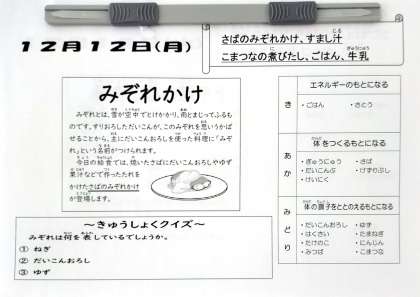 12月12日(月)
さばのみぞれかけ、すまし汁
こまつなの煮びたし、ごはん、牛乳
みぞれかけ
みぞれとは、雪が空中でとけかかり、雨とまじってふるも
のです。すりおろしただいこんが、このみぞれを思いうかば
せることから、主にだいこんおろしを使った料理に「みぞ
れ」という名前がつけられます。
今日の給食では、焼いたさばにだいこんおろしやゆず
果汁などで作ったたれを
かけたさばのみぞれかけ
が登場します。
～きゅうしょくクイズ～
みぞれは何を表しているでしょうか。
① ねぎ
② だいこんおろし
③ ゆず
き
エネルギーのもとになる
・ごはん ・さとう
あか
体をつくるもとになる
・ぎゅうにゅう ・さば
・だいこんぶ ・けずりぶし
・けいにく
みどり
体の調子をととのえるもとになる
・だいこんおろし ・ゆず
・はくさい ・たまねぎ
・たけのこ ・にんじん
・みつば ・こまつな